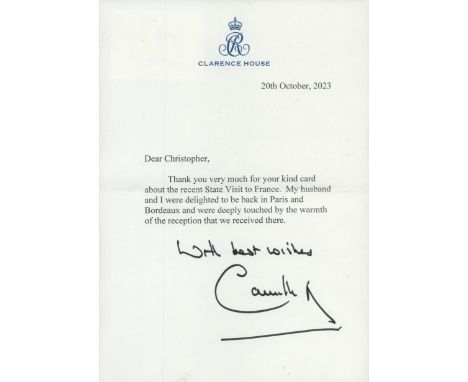 CLARENCE HOUSE
20th October, 2023
Dear Christopher,
Thank you very much for your kind card
about the recent State Visit to France. My husband
and I were delighted to be back in Paris and
Bordeaux and were deeply touched by the warmth
of the reception that we received there.
With best wishes
Camilla R